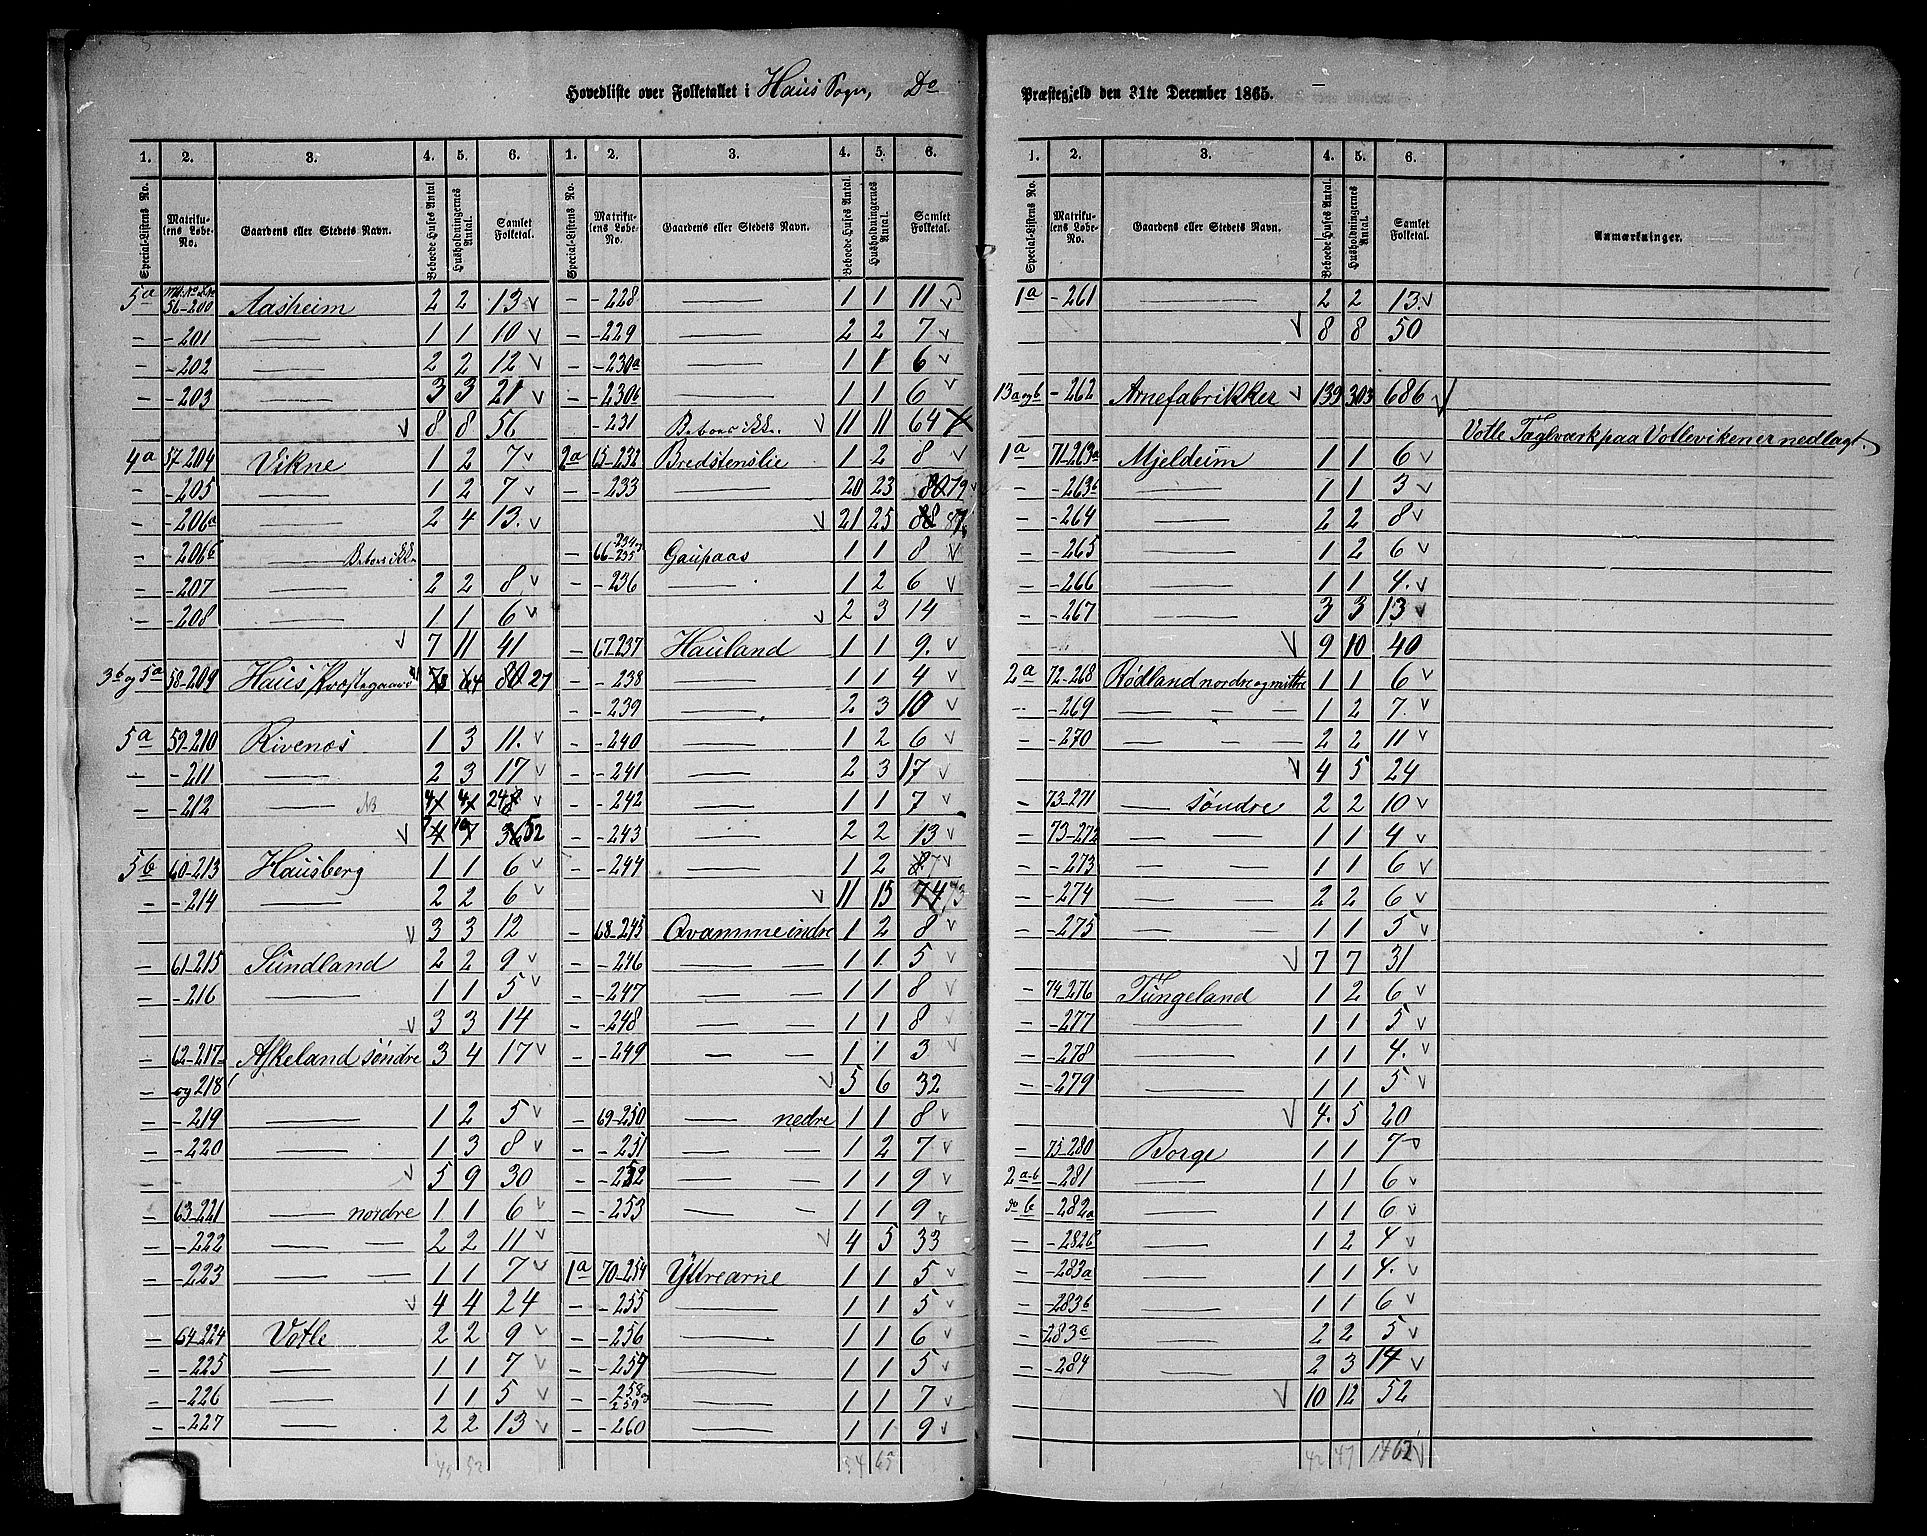 Hovedliste over Folketallet i Haus Sogn, Do Præstegjeld den 31te December 1865.
1. 2. 3. 4. 5. 6. 1. 2. 3. 4. 5. 6.
Special-Listens No. Matrikulens Løbe-No. Gaardens eller Stedets Navn. Beboede Huses Antal Husholdningernes Antal. Samlet Folketal. Special-Listens No. Matrikulens Løbe-No. Gaardens eller Stedets Navn. Beboede Huses Antal. Husholdningernes Antal. Samlet Folketal.
5a 56-200 Aasheim 2 2 13
- -201 — 1 1 10
- -202 — 2 2 12
- -203 — 3 3 21
8 8 56
4a 57-204 Vikne 1 2 7
- -205 — 1 2 7
- -206a — 2 4 13
- -206b — Beboes ikke
- -207 — 2 2 8
- -208 — 1 1 6
7 11 41
3b og 5a 58-209 Haus Præstegaard 3 4 80 27
5a 59-210 Rivenæs 1 3 11
- -211 — 2 3 17
- -212 — NB 4 4 24
7 10 36 52
5b 60-213 Hausberg 1 1 6
- -214 — 2 2 6
3 3 12
- 61-215 Sundland 2 2 9
- -216 — 1 1 5
3 3 14
- 62-217 Askeland søndre 3 4 17
- og 218
- -219 — 1 2 5
- -220 — 1 3 8
- 5 9 30
- 63-221 — nordre 1 1 6
- -222 — — 2 2 11
- -223 — — 1 1 7
4 4 24
- 64-224 Votle 2 2 9
- -225 — 1 1 7
- -226 — 1 1 5
- -227 — 2 2 13
45 52
- -228 — 1 1 11
- -229 — 2 2 7
- -230a — 1 1 6
- -230b — 1 1 6
-231 Beboes ikke. 11 11 64
2a 65-232 Bredstenslie 1 2 8
- -233 — 20 23 80 79
21 25 88 87
- 66-234 og 235 Gaupaas 1 1 8
- -236 — 1 2 6
2 3 14
- 67-237 Hauland 1 1 9
- -238 — 1 1 4
- -239 — 2 3 10
- -240 — 1 2 6
- -241 — 2 3 17
- -242 — 1 1 7
- -243 — 2 2 13
- -244 — 1 2 8 7
11 15 74 73
- 68-245 Qvamme indre 1 2 8
- -246 — — 1 1 5
- -247 — — 1 1 8
- -248 — — 1 1 8
- -249 — — 1 1 3
5 6 32
- 69-250 — nedre 1 1 8
- -251 — — 1 2 7
- -252 — — 1 1 9
- -253 — — 1 1 9
4 5 33
1a 70-254 Yttrearne 1 1 5
- -255 — 1 1 5
- -256 — 1 1 6
- -257 — 1 1 5
- -258 og 259 — 1 1 7
- -260 — 1 1 9
54 65
1. 2. 3. 4. 5. 6.
Special-Listens No. Matrikulens Løbe-No. Gaardens eller Stedets Navn. Beboede Huses Antal. Husholdningernes Antal. Samlet Folketal. Anmærkninger.
1a -261 — 2 2 13
8 8 50
13a og b -262 Arnefabrikker 139 303 686
Votle Taglværk paa Votleviken er nedlagt
1a 71-263a Mjeldeim 1 1 6
- -263b — 1 1 3
- -264 — 2 2 8
- -265 — 1 2 6
- -266 — 1 1 4
- -267 — 3 3 13
9 10 40
2a 72-268 Rødland nordre og mittre 1 1 6
- -269 — — 1 2 7
- -270 — — 2 2 11
4 5 24
- 73-271 — søndre 2 2 10
- 73-272 — — 1 1 4
- -273 — — 1 1 6
- -274 — — 2 2 6
- -275 — — 1 1 5
7 7 31
- 74-276 Tungeland 1 2 6
- -277 — 1 1 5
- -278 — 1 1 4
- -279 — 1 1 5
4 5 20
- 75-280 Borge 1 1 7
2a-b -281 — 1 1 6
do b -282a — 1 1 6
- -282b — 1 2 4
- -283a — 1 1 4
- -283b — 1 1 6
- -283c — 2 2 5
- -284 — 2 3 14
10 12 52
42 47 1462